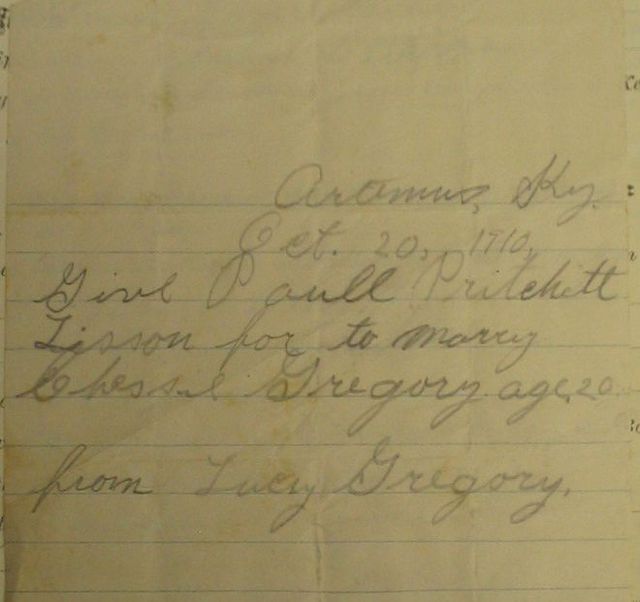 Artemus, Ky.
Oct. 20, 1910,
Give Paull Pritchett
Lisson for to marry
Chessie Gregory age, 20
from Lucy Gregory,